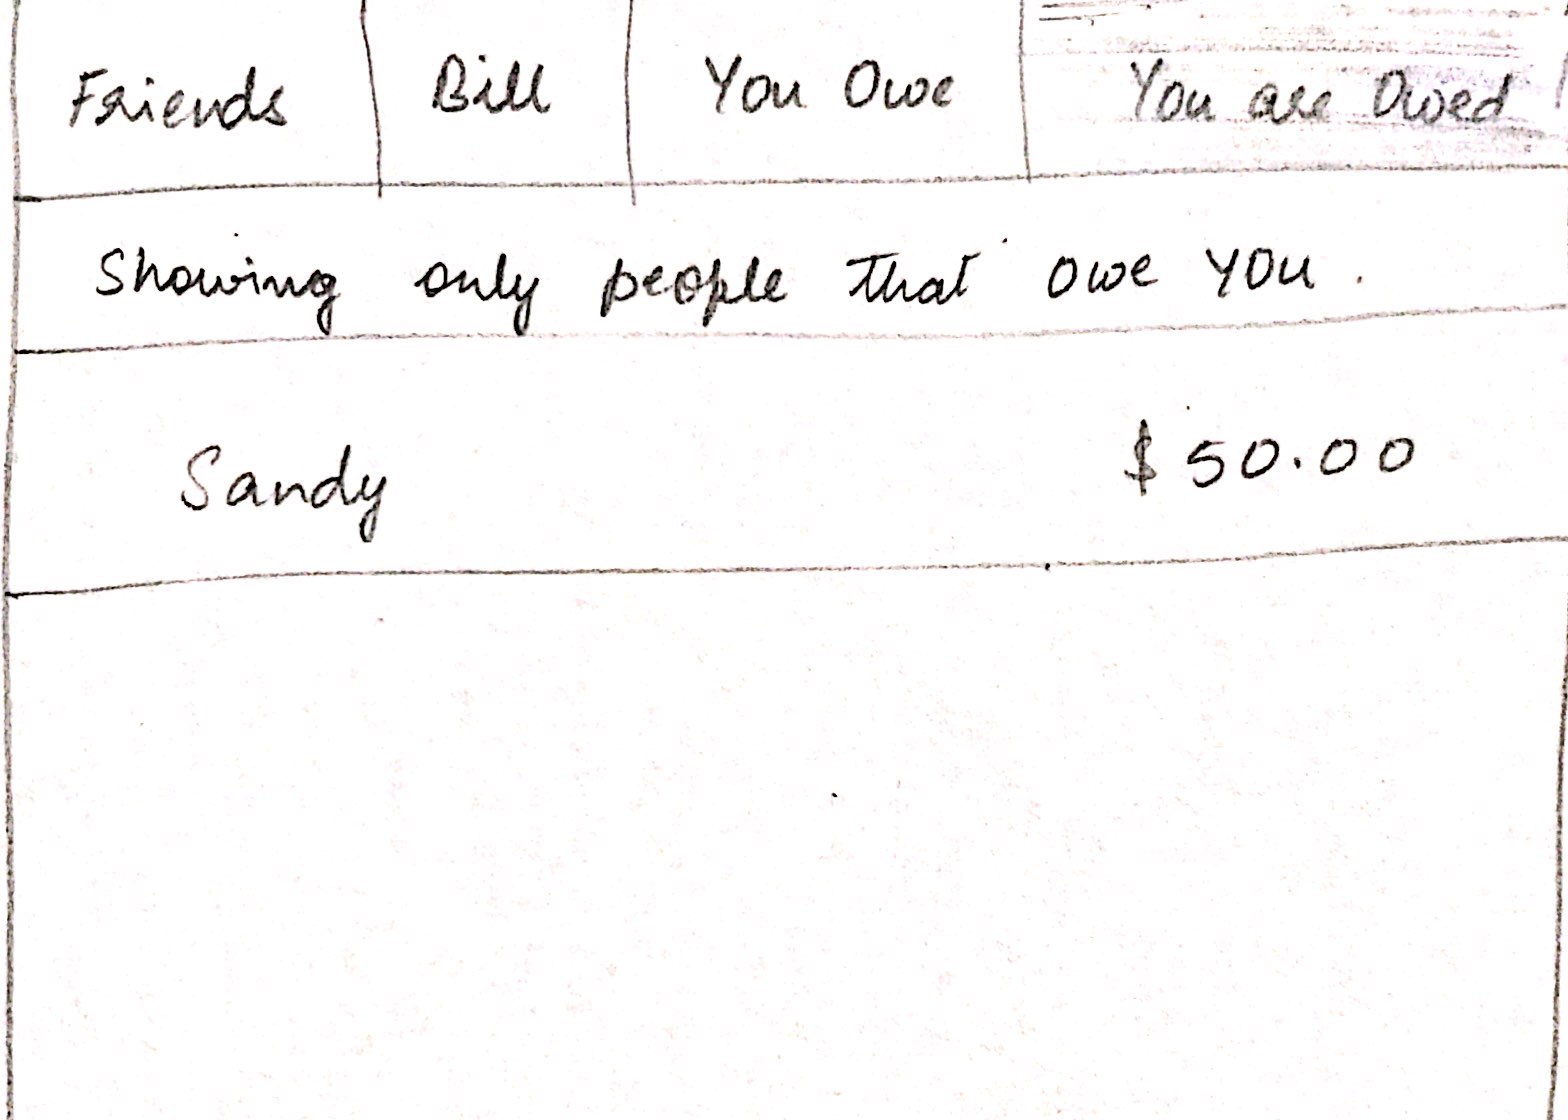 Friends Bill You Owe You are Owed
Showing only people that owe you.
Sandy $50.00